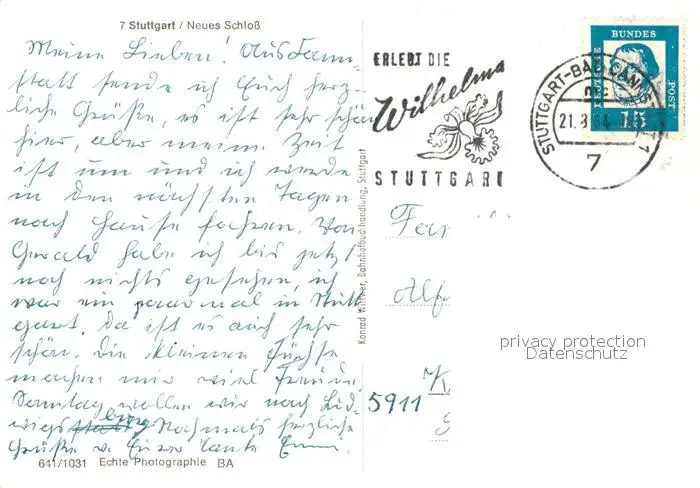 7 Stuttgart / Neues Schloß
Meine Lieben! Aus Fann-
statt sende ich Euch herz-
liche Grüße, es ist sehr schön
hier, aber meine Zeit
ist um und ich werde
in den nächsten Tagen
nach Hause fahren. Von
Gerald habe ich bis jetzt
noch nichts gesehen, ich
war ein paarmal in Stutt
gart, da ist es auch sehr
schön. Die kleinen Füchse
machen mir viel Freude,
Sonntag wollen wir nach Lud-
wigsburg Nochmals herzliche
Grüße v. Eurer Tante
641/1031 Echte Photographie BA
Konrad Wittwer, Bahnhofbuchhandlung, Stuttgart
ERLEBT DIE
Wilhelma
STUTTGART
STUTTGART-BAD CANNSTATT 1
21.8.64
7
DEUTSCHE BUNDESPOST
15
Fa
Alf
K
5911
privacy protection
Datenschutz